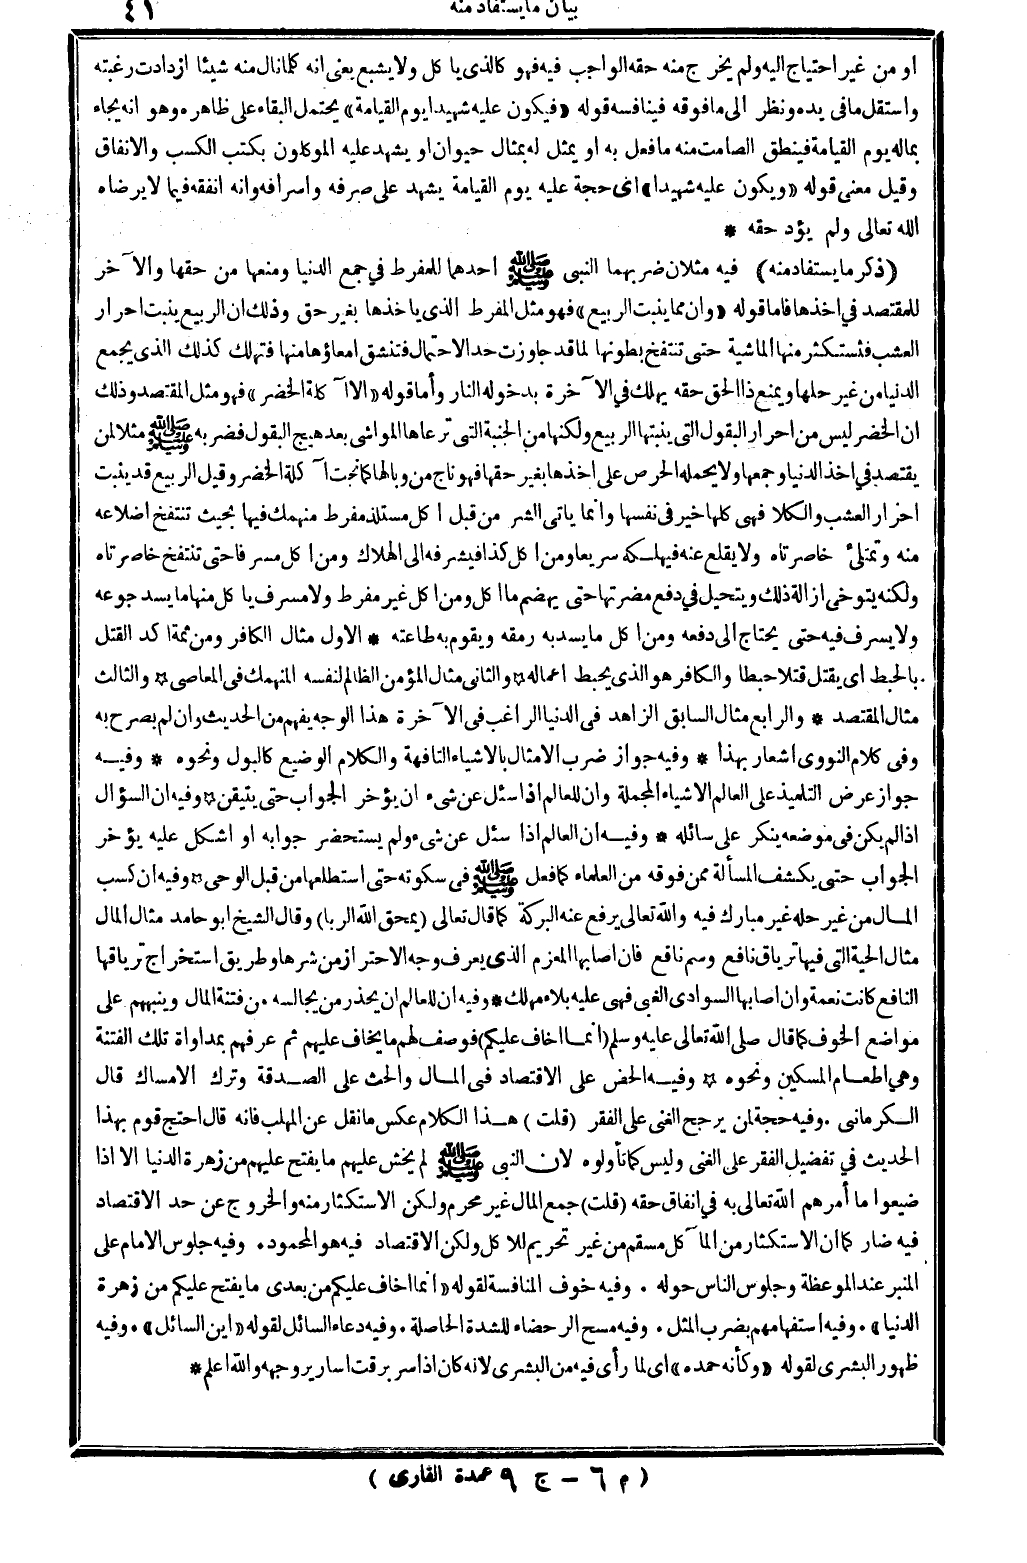 بيان ما يستفاد منه ٤١
او من غير احتياج اليه ولم يخرج منه حقه الواجب فيه فهو كالذى يا كل ولا يشبع يعنى انه كلما نال منه شيئا ازدادت رغبته
واستقل مافى يده ونظر الى مافوقه فينافسه قوله «فيكون عليه شهيدا يوم القيامة» يحتمل البقاء على ظاهره وهو انه يجاء
بماله يوم القيامة فينطق الصامت منه مافعل به او يمثل له بمثال حيوان او يشهد عليه الموكلون بكتب الكسب والانفاق
وقيل معنى قوله «ويكون عليه شهيدا» اى حجة عليه يوم القيامة يشهد على صرفه واسرافه وانه انفقه فيما لا يرضاه
الله تعالى ولم يؤد حقه *
(ذكر ما يستفاد منه) فيه مثلان ضربهما النبى ﷺ احدهما للمفرط في جمع الدنيا ومنعها من حقها والآخر
للمقتصد في اخذها فاما قوله «وان مما ينبت الربيع» فهو مثل المفرط الذى ياخذها بغير حق وذلك ان الربيع ينبت احرار
العشب فتستكثر منها الماشية حتى تنتفخ بطونها لما قد جاوزت حد الاحتمال فتنشق امعاؤها منها فتهلك كذلك الذى يجمع
الدنيا من غير حلها ويمنع ذا الحق حقه يهلك في الآخرة بدخوله النار وأما قوله «الا آكلة الخضر» فهو مثل المقتصد وذلك
ان الخضر ليس من احرار البقول التى ينبتها الربيع ولكنها من الجنبة التى ترعاها المواشى بعد هيج البقول فضربه ﷺ مثلا لمن
يقتصد في اخذ الدنيا وجمعها ولا يحمله الحرص على اخذها بغير حقها فهو ناج من وبالها كما نجت آكلة الخضر وقيل الربيع قد ينبت
احرار العشب والكلا فهى كلها خير فى نفسها وانما ياتى الشر من قبل اكل مستلذ مفرط منهمك فيها بحيث تنتفخ اضلاعه
منه وتمتلئ خاصرتاه ولا يقلع عنه فيهلكه سريعا ومن اكل كذا فيشرفه الى الهلاك ومن اكل مسرفا حتى تنتفخ خاصرتاه
ولكنه يتوخى ازالة ذلك ويتحيل في دفع مضرتها حتى يهضم ما اكل ومن اكل غير مفرط ولا مسرف يا كل منها ما يسد جوعه
ولا يسرف فيه حتى يحتاج الى دفعه ومن اكل ما يسد به رمقه ويقوم به طاعته * الاول مثال الكافر ومن ثمة اكد القتل
بالحبط اى يقتل قتلا حبطا والكافر هو الذى يحبط اعماله * والثانى مثال المؤمن الظالم لنفسه المنهمك فى المعاصى * والثالث
مثال المقتصد * والرابع مثال السابق الزاهد فى الدنيا الراغب فى الآخرة هذا الوجه يفهم من الحديث وان لم يصرح به
وفى كلام النووى اشعار بهذا * وفيه جواز ضرب الامثال بالاشياء التافهة والكلام الوضيع كالبول ونحوه * وفيه
جواز عرض التلميذ على العالم الاشياء المجملة وان للعالم اذا سئل عن شىء ان يؤخر الجواب حتى يتيقن * وفيه ان السؤال
اذا لم يكن فى موضعه ينكر على سائله * وفيه ان العالم اذا سئل عن شىء ولم يستحضر جوابه او اشكل عليه يؤخر
الجواب حتى يكشف المسألة ممن فوقه من العلماء كما فعل ﷺ فى سكوته حتى استطلعها من قبل الوحى * وفيه ان كسب
المال من غير حله غير مبارك فيه والله تعالى يرفع عنه البركة كما قال تعالى (يمحق الله الربا) وقال الشيخ ابو حامد مثال المال
مثال الحية التى فيها ترياق نافع وسم ناقع فان اصابها المعزم الذى يعرف وجه الاحتراز من شرها وطريق استخراج ترياقها
النافع كانت نعمة وان اصابها السوادى الغبى فهى عليه بلاء مهلك * وفيه ان للعالم ان يحذر من يجالسه من فتنة المال وينبههم على
مواضع الخوف كما قال صلى الله تعالى عليه وسلم (انما اخاف عليكم) فوصف لهم ما يخاف عليهم ثم عرفهم بمداواة تلك الفتنة
وهي اطعام المسكين ونحوه * وفيه الحض على الاقتصاد فى المال والحث على الصدقة وترك الامساك قال
الكرمانى . وفيه حجة لمن يرجح الغنى على الفقر (قلت) هذا الكلام عكس ما نقل عن المهلب فانه قال احتج قوم بهذا
الحديث في تفضيل الفقر على الغنى وليس كما تأولوه لان النبى ﷺ لم يخش عليهم ما يفتح عليهم من زهرة الدنيا الا اذا
ضيعوا ما أمرهم الله تعالى به في انفاق حقه (قلت) جمع المال غير محرم ولكن الاستكثار منه والخروج عن حد الاقتصاد
فيه ضار كما أن الاستكثار من المآكل مسقم من غير تحريم للاكل ولكن الاقتصاد فيه هو المحمود . وفيه جلوس الامام على
المنبر عند الموعظة وجلوس الناس حوله . وفيه خوف المنافسة لقوله «انما اخاف عليكم من بعدى ما يفتح عليكم من زهرة
الدنيا» . وفيه استفهامهم بضرب المثل . وفيه مسح الرحضاء للشدة الحاصلة . وفيه دعاء السائل لقوله «اين السائل» . وفيه
ظهور البشرى لقوله «وكأنه حمده» اى لما رأى فيه من البشرى لانه كان اذا سر برقت اسارير وجهه والله اعلم *
(م ٦ — ج ٩ عمدة القارى)